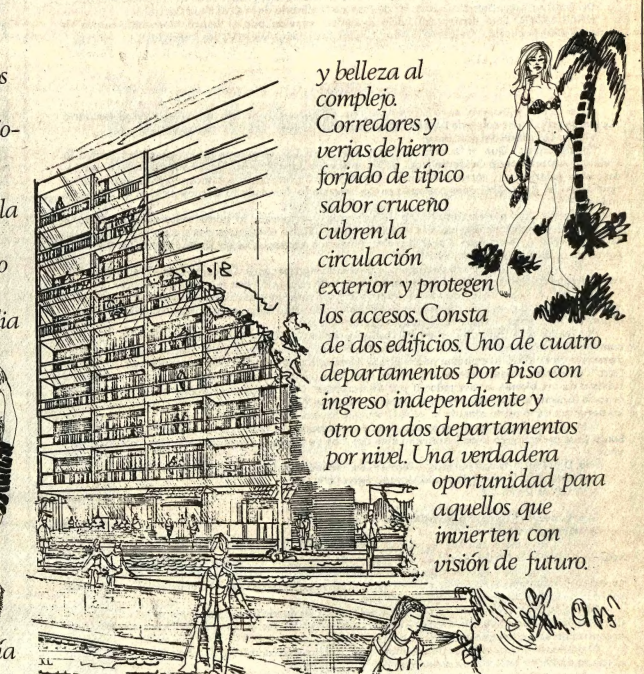 s
o-
la
o
lia
ía
y belleza al
complejo.
Corredores y
verjas de hierro
forjado de típico
sabor cruceño
cubren la
circulación
exterior y protegen
los accesos. Consta
de dos edificios. Uno de cuatro
departamentos por piso con
ingreso independiente y
otro con dos departamentos
por nivel. Una verdadera
oportunidad para
aquellos que
invierten con
visión de futuro.
XL